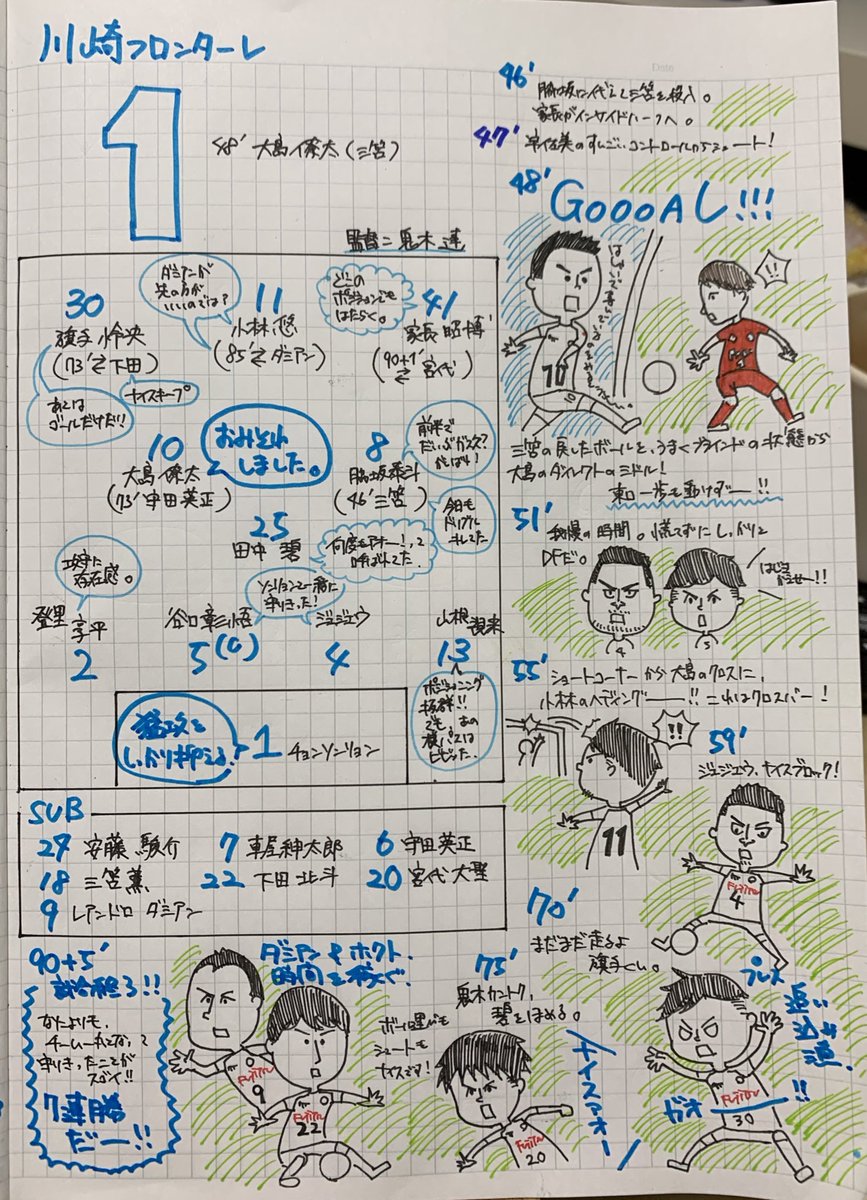 川崎フロンターレ
1
48' 大島僚太(三笘)
監督:鬼木達
30
旗手怜央
(73'⇄下田)
ダミアンが
先の方が
いいのでは?
11
小林悠
(85'⇄ダミアン)
どこの
ポジションでも
はたらく。
41
家長昭博
(90+1'
⇄宮代)
あとは
ゴールだけだ!!
ナイスキープ
10
大島僚太
(73'守田英正)
おみそれ
しました。
8
脇坂泰斗
(46'三笘)
前半で
がんばれ!
25
田中碧
何度もアオー!って
呼ばれてた
今日も
ドリブル
キレてた
攻守に
存在感。
登里享平
2
谷口彰悟
5(C)
ソンリョンと一緒に
守りきった!
ジェジエウ
4
山根視来
13
ポジショニング
抜群!!
でも、あの
横パスは
ビビった。
猛攻を
しっかり抑える!
1 チョンソンリョン
SUB
27 安藤駿介 7 車屋紳太郎 6 守田英正
18 三笘薫 22 下田北斗 20 宮代大聖
9 レアンドロ ダミアン
90+5'
試合終了!!
なによりも、
守りきったことが
スゴイ!!
7連勝
だー!!
ダミアンやホクト、
時間を稼ぐ。
FUJITSU
9
FUJITSU
22
46' 脇坂に代えて三笘を投入。
家長がインサイドハーフへ。
47' 宇佐美のすんごいコントロールからシュート!
48' GOOOAL!!!
10
!!
三笘の戻したボールを、うまくブラインドの状態から
大島のダイレクトのミドル!
東口一歩も動けずー!!
51' 我慢の時間。慌てずにしっかりと
DFだ。
はじき
かえせー!!
4
5
55' ショートコーナーから大島のクロスに、
小林のヘディングー!!これはクロスバー!
!!
11
59'
ジェジエウ、ナイスブロック!
FUJITSU
4
70'
まだまだ走るよ
旗手くん。
プレス
追い
込み
漁。
ガオー!!
FUJITSU
30
75'
鬼木カントク、
碧をほめる。
ボール運びも
シュートも
ナイスです!
ナイスアオー!
FUJITSU
20